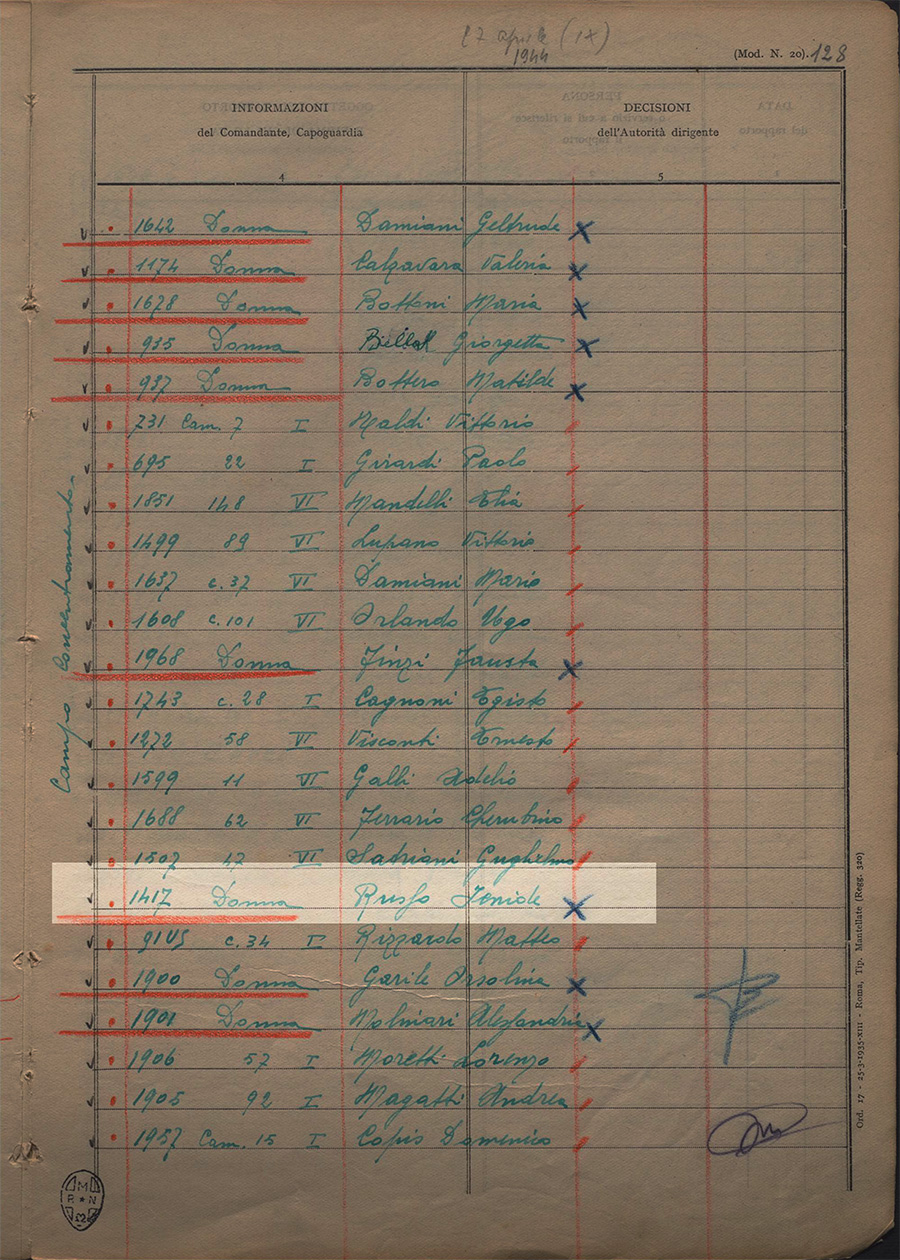 27 aprile (IX)
1944
(Mod. N. 20). 128
INFORMAZIONI
del Comandante, Capoguardia
DECISIONI
dell'Autorità dirigente
4
5
1642 Donna Damiani Geltrude
1174 Donna Calzavara Valeria
1678 Donna Bottoni Maria
935 Donna Giorgetta
937 Donna Bottero Matilde
731 Cam. 7 I Naldi Vittorio
695 22 I Girardi Paolo
1851 148 VI Mandelli Elia
1499 89 VI Lupano Vittorio
1637 c. 37 VI Damiani Mario
1608 c. 101 VI Orlando Ugo
1968 Donna Finzi Fausta
1743 c. 28 I Cagnoni Egisto
1272 58 VI Visconti Ernesto
1599 11 VI Galli Adelio
1688 62 VI Ferrario Cherubino
1507 47 VI Satriani Guglielmo
1417 Donna Russo Jenide
91US c. 34 I Rizzardo Matteo
1900 Donna Garile Orsolina
1901 Donna Molinari Alessandria
1906 57 I Moretti Lorenzo
1905 92 I Magatti Andrea
1957 Cam. 15 I Copis Domenico
Campo Concentramento.
Ord. 17 - 25-3-1935-XIII - Roma, Tip. Mantellate (Regg. 320)